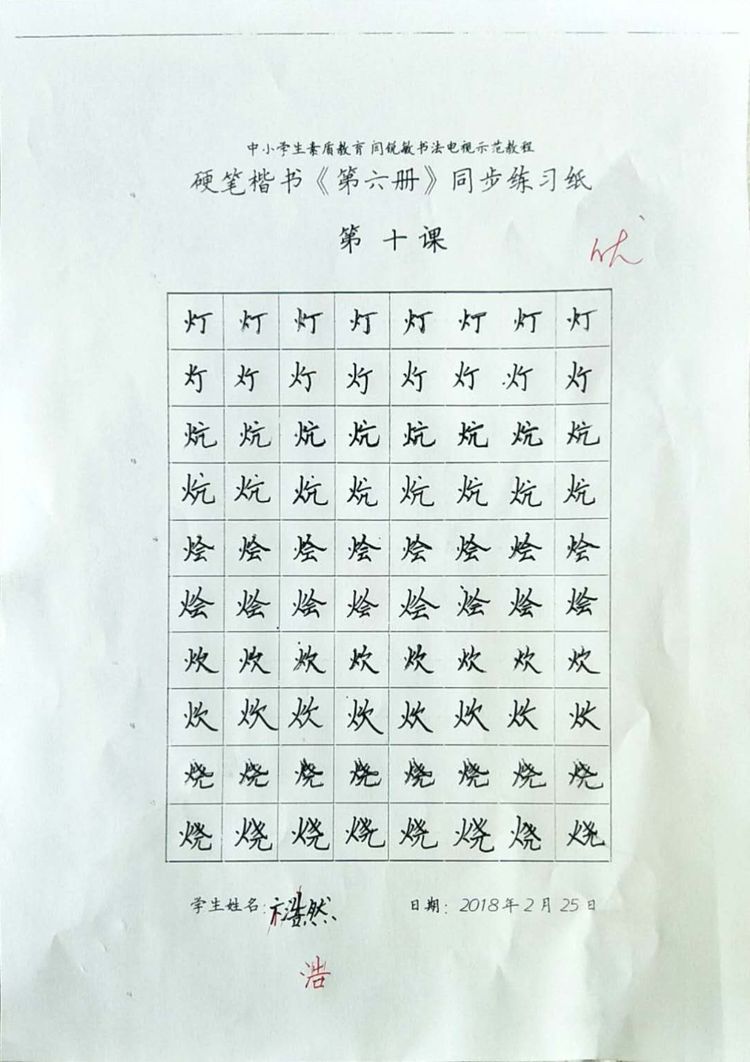 中小学生素质教育闫锐敏书法电视示范教程
硬笔楷书《第六册》同步练习纸
第十课
优
灯 灯 灯 灯 灯 灯 灯 灯
灯 灯 灯 灯 灯 灯 灯 灯
炕 炕 炕 炕 炕 炕 炕 炕
炕 炕 炕 炕 炕 炕 炕 炕
烩 烩 烩 烩 烩 烩 烩 烩
烩 烩 烩 烩 烩 烩 烩 烩
炊 炊 炊 炊 炊 炊 炊 炊
炊 炊 炊 炊 炊 炊 炊 炊
烧 烧 烧 烧 烧 烧 烧 烧
烧 烧 烧 烧 烧 烧 烧 烧
学生姓名: 浩然 日期: 2018年2月25日
浩